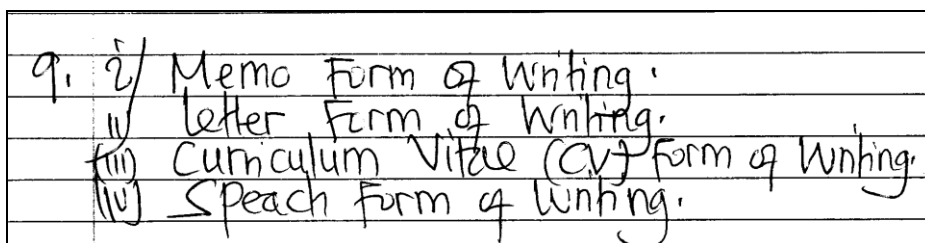 9. i/ Memo Form of Writing.
ii) letter Form of Writing.
(iii) Curriculum Vitae (CV) Form of Writing.
(iv) Speach Form of Writing.